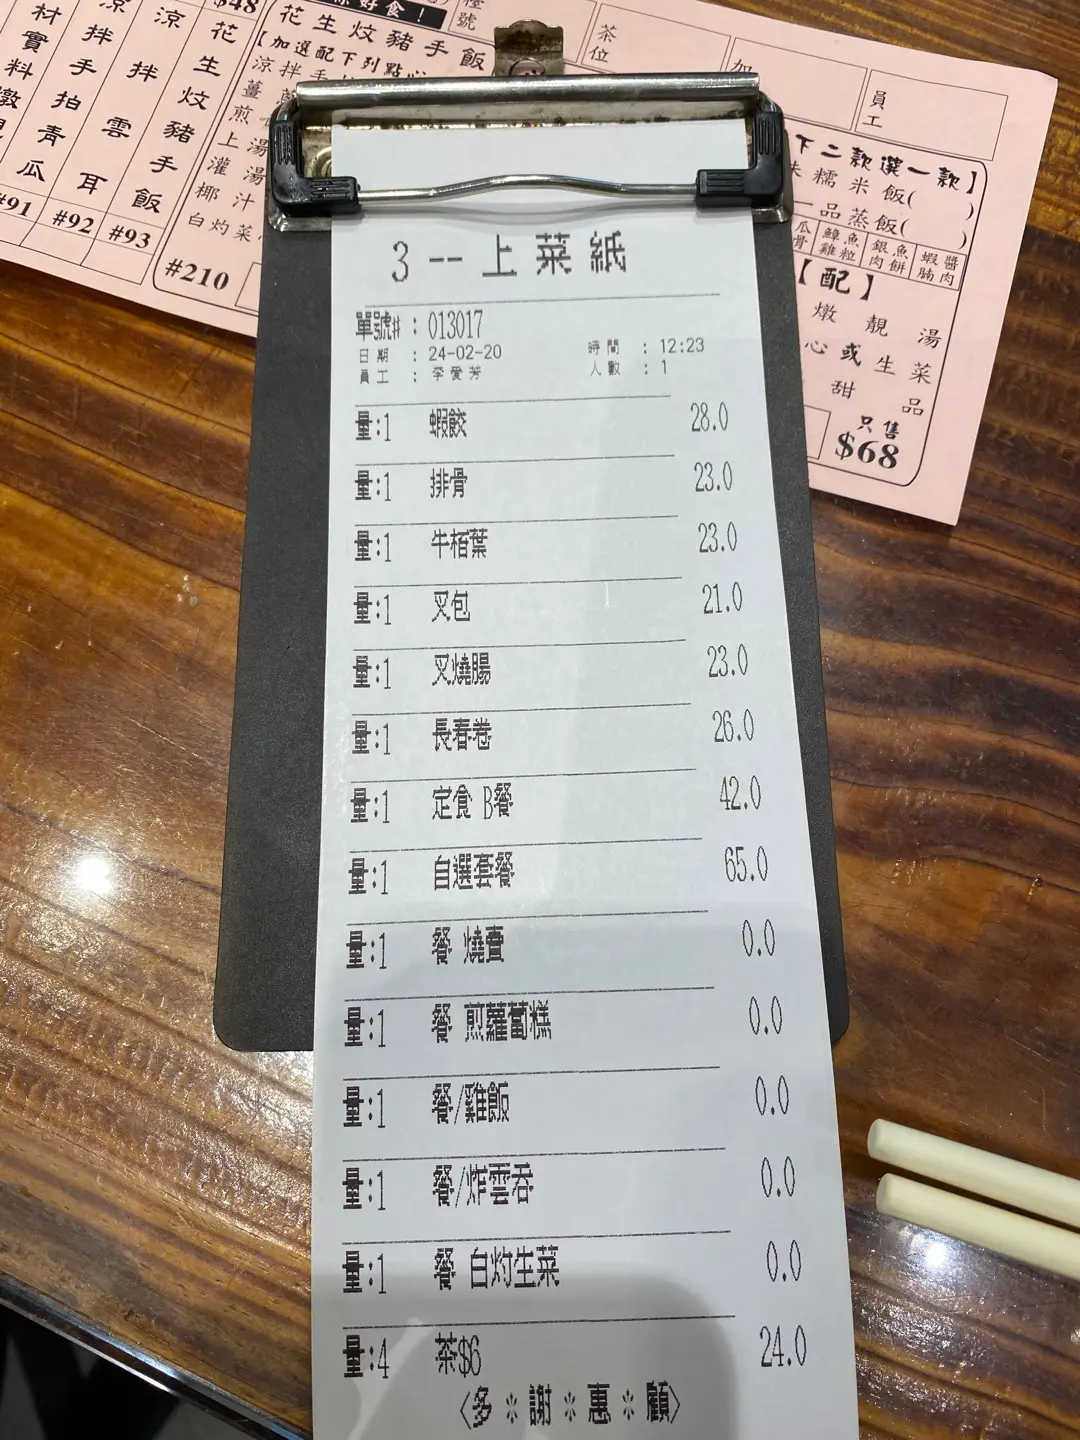 3 -- 上菜紙
單號# : 013017
日期 : 24-02-20 時間 : 12:23
員工 : 李愛芳 人數 : 1
量:1 蝦餃 28.0
量:1 排骨 23.0
量:1 牛栢葉 23.0
量:1 叉包 21.0
量:1 叉燒腸 23.0
量:1 長春卷 26.0
量:1 定食 B餐 42.0
量:1 自選套餐 65.0
量:1 餐 燒賣 0.0
量:1 餐 煎蘿蔔糕 0.0
量:1 餐/雞飯 0.0
量:1 餐/炸雲吞 0.0
量:1 餐 白灼生菜 0.0
量:4 茶$6 24.0
〈多*謝*惠*顧〉
材實料燉
涼拌手拍青瓜
#91
涼拌雲耳
#92
花生炆豬手飯
#93
$48
好食！
花生炆豬手飯
【加選配下列點心
涼拌手
薑
煎
上湯
灌湯
椰汁
白灼菜
#210
號
茶位
加
員工
下二款選一款】
糯米飯( )
一品蒸飯( )
瓜骨
鱆魚雞粒
銀魚肉餅
蝦醬腩肉
【配】
燉靚湯
心或生菜
甜品
只售
$68